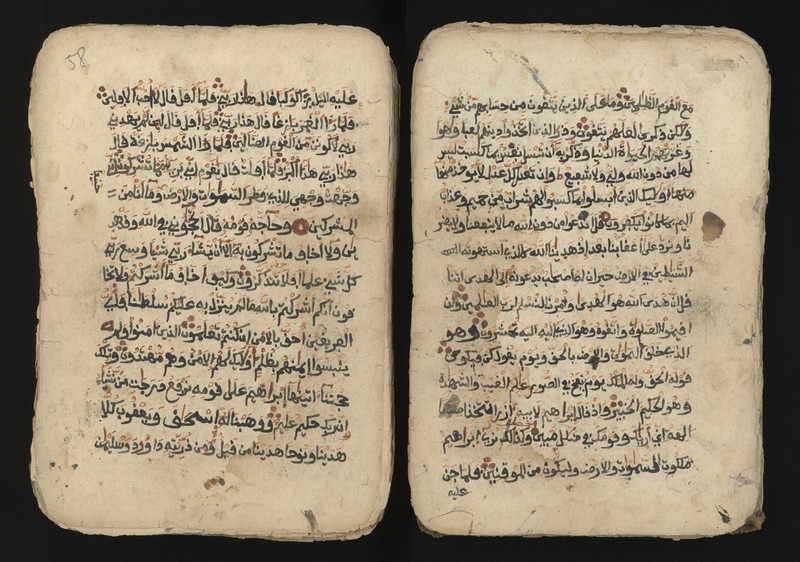 مع القوم الظلمين وما على الذين يتقون من حسابهم من شيء
ولكن ذكرى لعلهم يتقون وذر الذين اتخذوا دينهم لعبا ولهوا
وغرتهم الحيوة الدنيا وذكر به أن تبسل نفس بما كسبت ليس
لها من دون الله ولي ولا شفيع وإن تعدل كل عدل لا يؤخذ
منها أوليك الذين أبسلوا بما كسبوا لهم شراب من حميم وعذاب
اليم بما كانوا يكفرون قل اندعوا من دون الله ما لا ينفعنا ولا يضر
نا ونرد على أعقابنا بعد إذ هدينا الله كالذي استهوته
الشيطين في الارض حيران له اصحاب يدعونه الى الهدى ائتنا
قل ان هدى الله هو الهدى وامرنا لنسلم لرب العلمين وان
اقيموا الصلوة واتقوه وهو الذي اليه تحشرون وهو
الذي خلق السموات والارض بالحق ويوم يقول كن فيكون
قوله الحق وله الملك يوم ينفخ في الصور علم الغيب والشهدة
وهو الحكيم الخبير واذ قال ابراهيم لابيه ازر اتتخذ اصناما
الهة اني اريك وقومك في ضلل مبين وكذلك نري ابراهيم
ملكوت السموات والارض وليكون من الموقنين فلما جن
عليه
58
عليه اليل رءا كوكبا قال هذا ربي فلما أفل قال لا أحب الافلين
فلما رءا القمر بازغا قال هذا ربي فلما أفل قال لين لم يهدني
ربي لاكونن من القوم الضالين فلما رءا الشمس بازغة قال
هذا ربي هذا أكبر فلما أفلت قال يقوم إني بريء مما تشركون إني
وجهت وجهي للذي فطر السموات والارض حنيفا وما أنا من
المشركين وحاجه قومه قال أتحجوني في الله وقد هد
ين ولا أخاف ما تشركون به إلا أن يشاء ربي شيا وسع ربي
كل شيء علما أفلا تتذكرون وكيف أخاف ما أشركتم ولا تخا
فون أنكم أشركتم بالله ما لم ينزل به عليكم سلطنا فأي
الفريقين أحق بالامن إن كنتم تعلمون الذين امنوا ولم
يلبسوا إيمنهم بظلم أوليك لهم الامن وهم مهتدون وتلك
حجتنا اتينها إبراهيم على قومه نرفع درجات من نشاء
إن ربك حكيم عليم ووهبنا له إسحاق ويعقوب كلا
هدينا ونوحا هدينا من قبل ومن ذريته داوود وسليمن